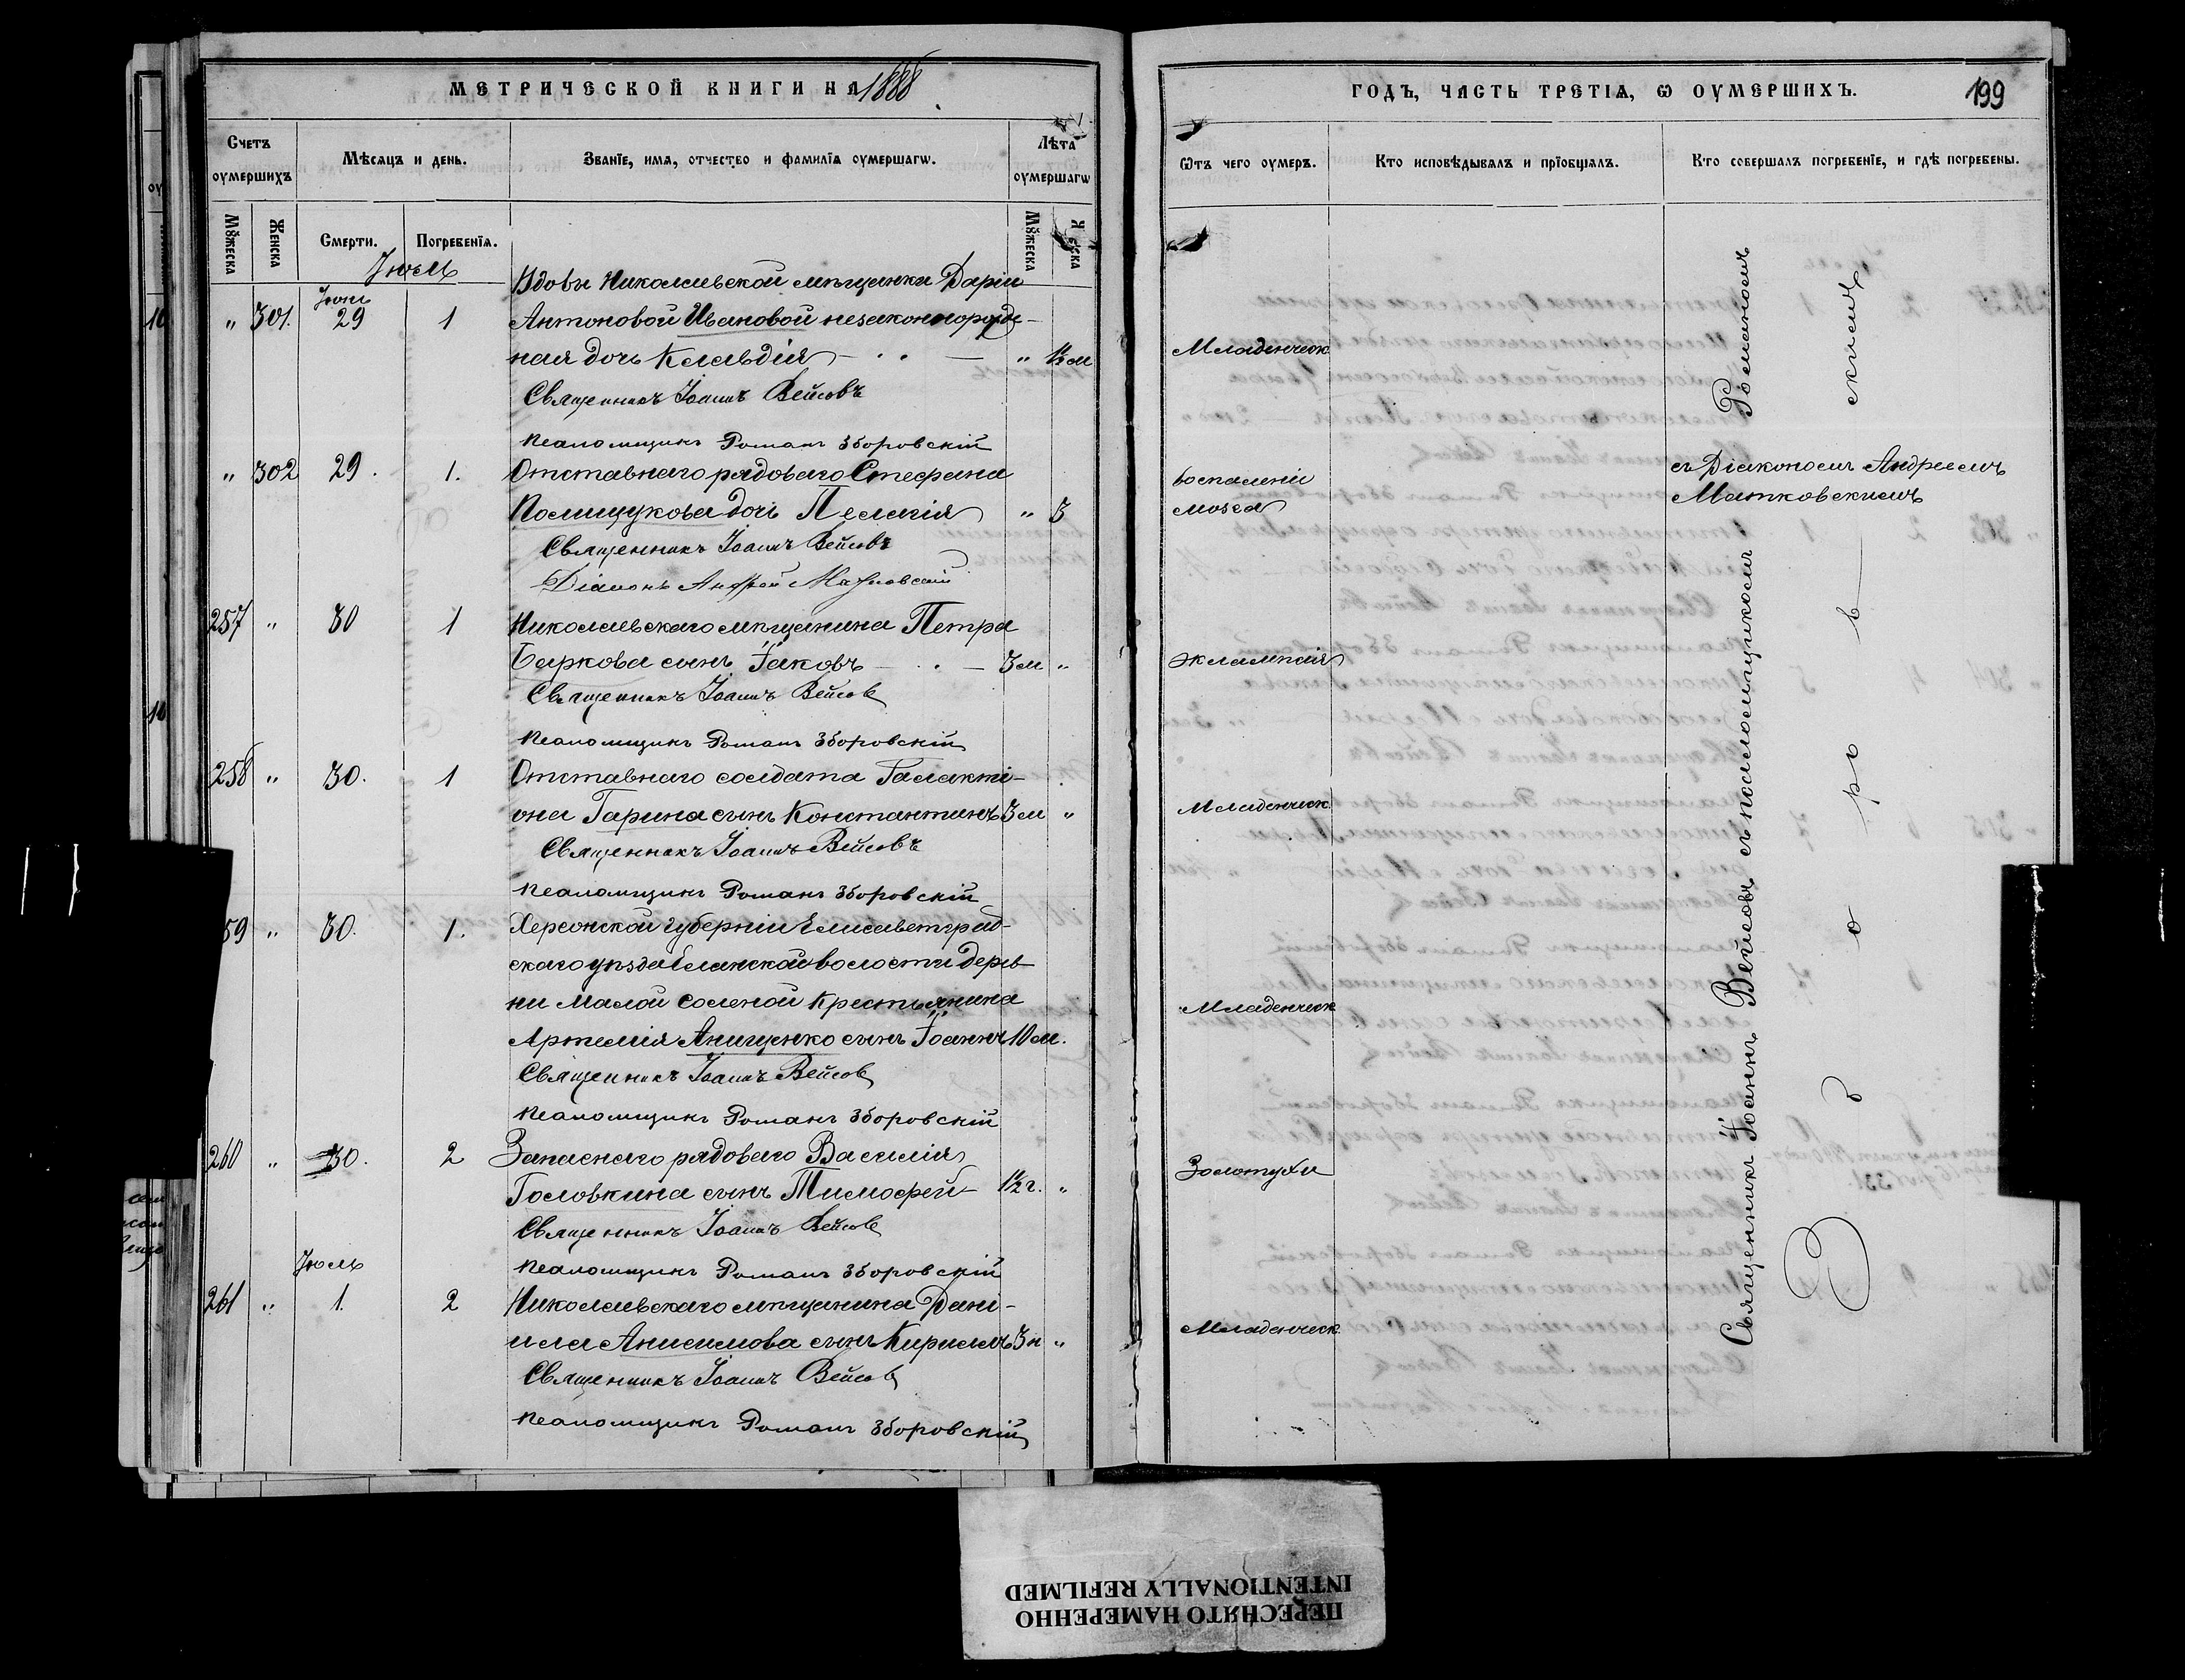 МЕТРИЧЕСКОЙ КНИГИ НА 1888
Счетъ оумершихъ
Мѣсяцъ и день.
Званіе, имя, отчество и фамилія оумершагѡ.
Лѣта оумершагѡ
Мꙋжеска
Женска
Смерти.
Погребенія.
Мꙋжеска
Іюль
Вдовы Николаевской мѣщанки Даріи
" 301. Іюня 29 1 Антоновой Ивановой незаконнорожде-
ная дочь Клавдія " 1½ м
Священникъ Іоаннъ Вейсовъ
Псаломщикъ Романъ Зборовскій
" 302 29. 1. Отставнаго рядоваго Стефана
Полищукова дочь Пелагія " 3
Священникъ Іоаннъ Вейсовъ
Діаконъ Андрей Матковскій
257 " 30 1 Николаевскаго мѣщанина Петра
Баркова сынъ Іаковъ 3 м "
Священникъ Іоаннъ Вейсовъ
Псаломщикъ Романъ Зборовскій
258 " 30. 1 Отставнаго солдата Галакті-
она Гарина сынъ Константинъ 3 м "
Священникъ Іоаннъ Вейсовъ
Псаломщикъ Романъ Зборовскій
59 " 30. 1. Херсонской губерніи Елисаветград-
скаго уѣзда волости дерев-
ни Малой Соленой крестьянина
Артемія Анищенко сынъ Іоаннъ 10 м.
Священникъ Іоаннъ Вейсовъ
Псаломщикъ Романъ Зборовскій
260 " 30. 2 Запаснаго рядоваго Василія
Головкина сынъ Тимофей 1½ г. "
Священникъ Іоаннъ Вейсовъ
Псаломщикъ Романъ Зборовскій
Іюль
261 " 1. 2 Николаевскаго мѣщанина Дані-
ила Анисимова сынъ Кириллъ 3 н "
Священникъ Іоаннъ Вейсовъ
Псаломщикъ Романъ Зборовскій
ГОДЪ, ЧАСТЬ ТРЕТІЯ, Ѡ ОУМЕРШИХЪ.
199
Ѿтъ чего оумеръ.
Кто исповѣдывалъ и пріобщалъ.
Кто совершалъ погребеніе, и гдѣ погребены.
Младенческ
воспаленія
мозга
съ Діакономъ Андреемъ
Матковскимъ
эклампсія
Младенческ
Младенческ
Золотухи
Младенческ.
Священникъ Іоаннъ Вейсовъ съ псаломщикомъ Романомъ
Зборовскимъ
ПЕРЕСНЯТО НАМЕРЕННО
INTENTIONALLY REFILMED